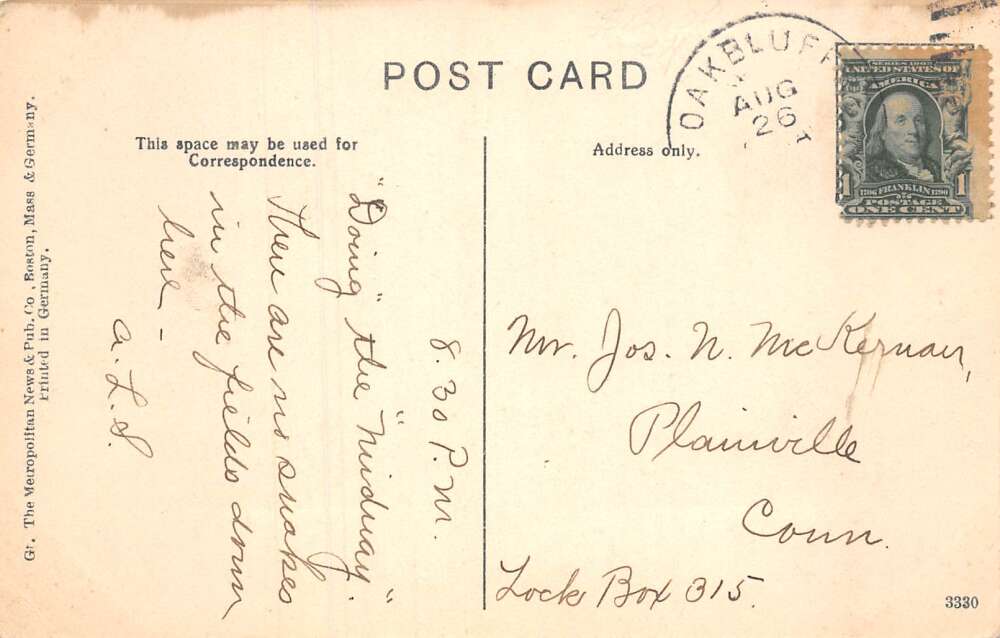 POST CARD
This space may be used for
Correspondence.
Address only.
OAK BLUFF
AUG
26
SERIES 1902
UNITED STATES OF
AMERICA
1 1706 FRANKLIN 1790 1
POSTAGE
ONE CENT
8.30 P.M.
"Doing" the "Midway".
There are no snakes
in the fields down
here –
a. L. S.
Mr. Jos. N. McKernan,
Plainville
Conn.
Lock Box 315.
3330
Gt. The Metropolitan News & Pub. Co., Boston, Mass & Germany.
Printed in Germany.